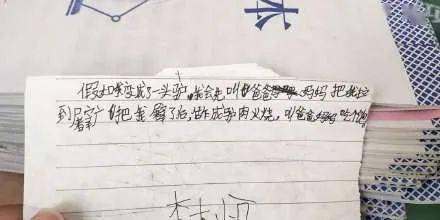 假如我变成了一头驴,我会先叫爸爸妈妈把我拉
到屠宰厂把我宰了后,做成驴肉火烧,叫爸爸妈妈吃个饱